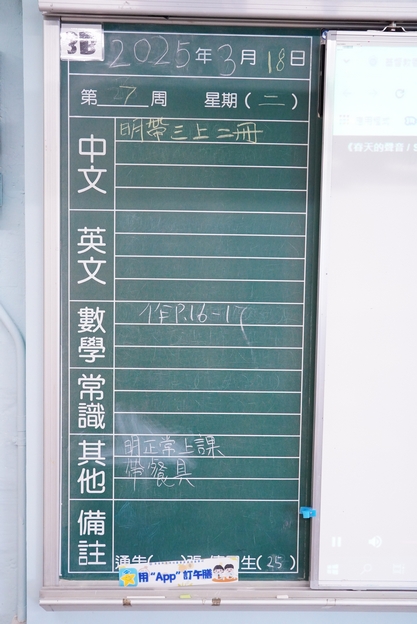 3E
2025年3月18日
第27周 星期(二)
中文
明帶三上二冊
英文
數學
作P.16-17
常識
其他
明正常上課
帶餐具
備註
通告( )張 生(25)
用"App"訂午膳
《春天的聲音》